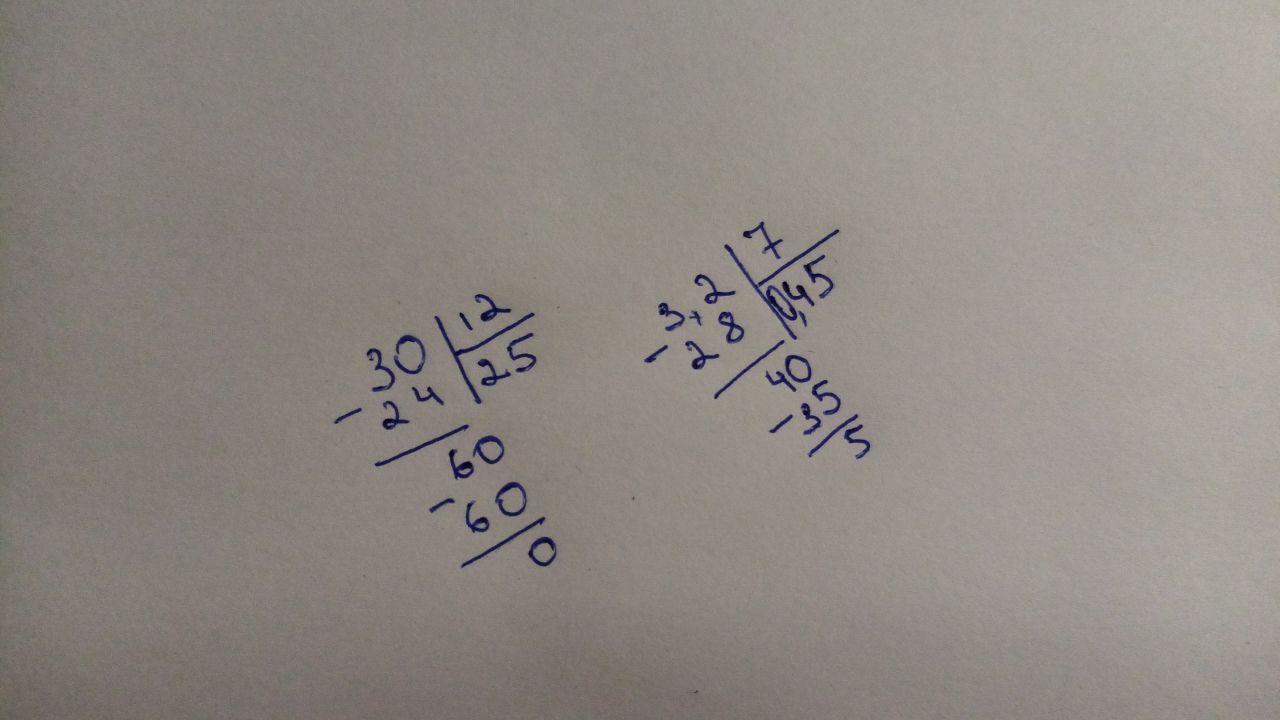 30 12
- 24 25
60
- 60
0
3,2 7
- 28 0,45
40
- 35
5